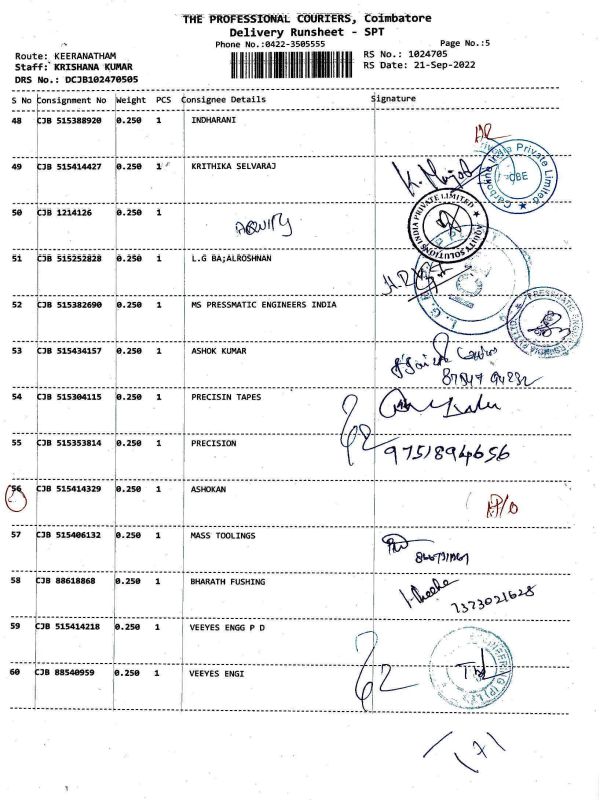 THE PROFESSIONAL COURIERS, Coimbatore
Delivery Runsheet - SPT
Phone No.:0422-3505555 Page No.:5
Route: KEERANATHAM RS No.: 1024705
Staff: KRISHANA KUMAR RS Date: 21-Sep-2022
DRS No.: DCJB102470505
S No Consignment No Weight PCS Consignee Details Signature
48 CJB 515388920 0.250 1 INDHARANI
49 CJB 515414427 0.250 1 KRITHIKA SELVARAJ
50 CJB 1214126 0.250 1
EQUITY SOLUTIONS INDIA PRIVATE LIMITED
51 CJB 515252828 0.250 1 L.G BA;ALROSHNAN
52 CJB 515382690 0.250 1 MS PRESSMATIC ENGINEERS INDIA
53 CJB 515434157 0.250 1 ASHOK KUMAR
54 CJB 515304115 0.250 1 PRECISIN TAPES
55 CJB 515353814 0.250 1 PRECISION 9751894656
56 CJB 515414329 0.250 1 ASHOKAN
57 CJB 515406132 0.250 1 MASS TOOLINGS
58 CJB 88618868 0.250 1 BHARATH FUSHING
7373021628
59 CJB 515414218 0.250 1 VEEYES ENGG P D
60 CJB 88540959 0.250 1 VEEYES ENGI